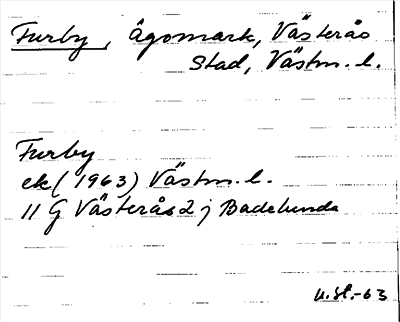 Furby, ägomark, Västerås
Stad, Västm. l.
Furby
ek (1963) Västm. l.
11 G Västerås 2 j Badelunda
U. St. -63